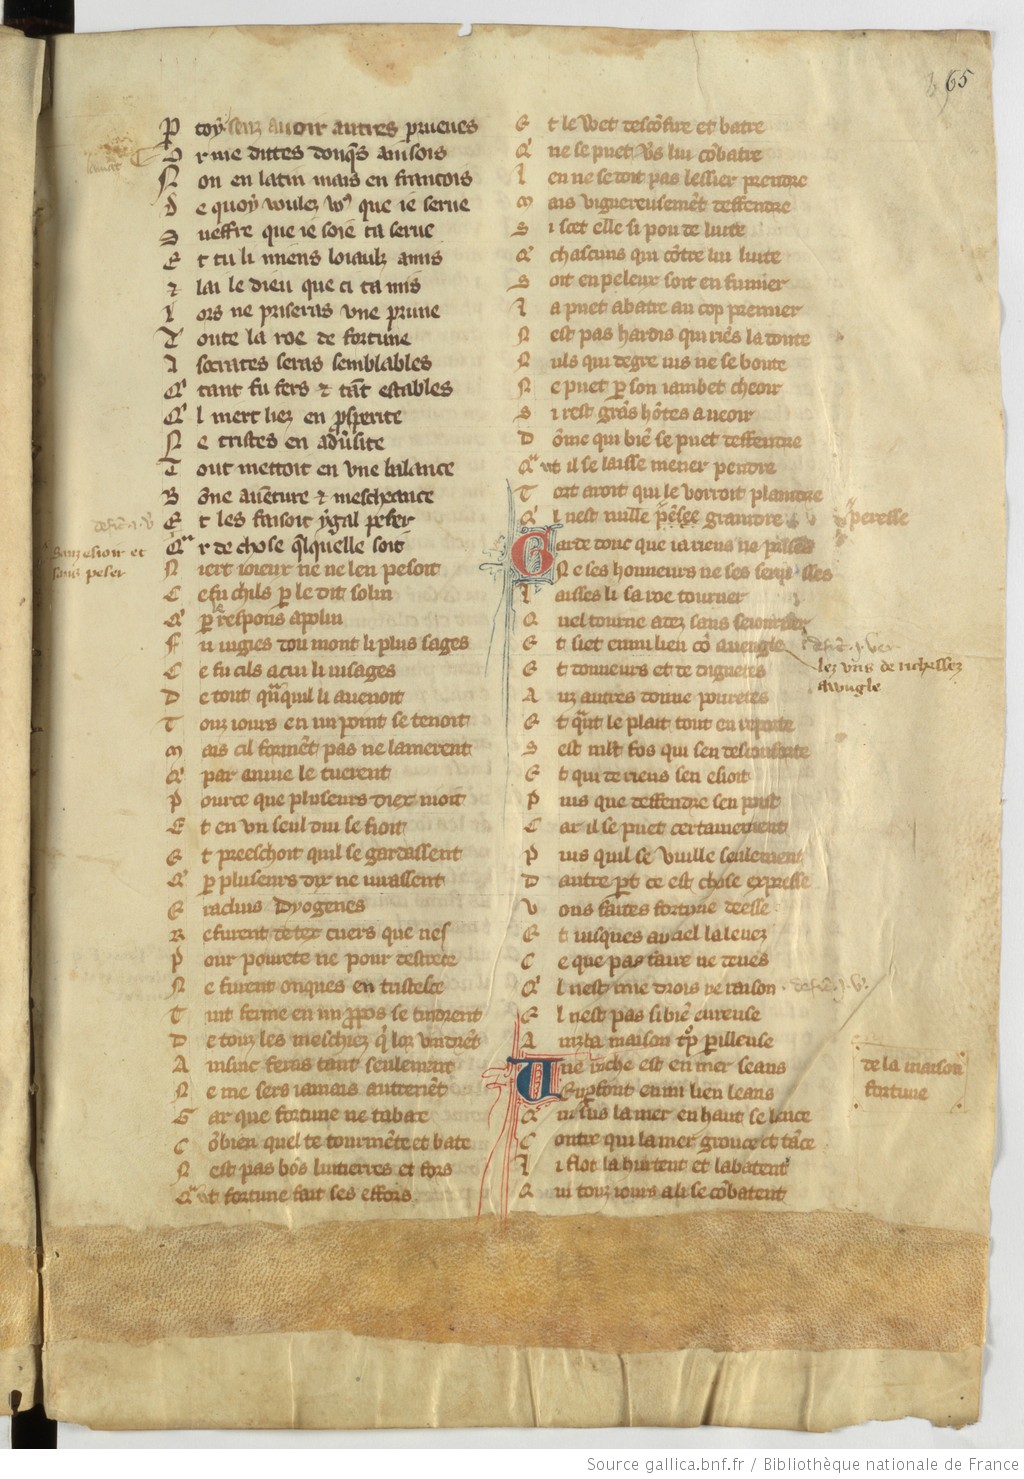 65
P toy senz avoir autres prueves
O r me dittes donqs ainsois
N on en latin mais en francois
d e quoy voulez vos que ie serve
S ueffre que ie soie ta serve
E t tu li miens loiaulz amis
& lai le dieu que ci ta mis
L ors ne priseras une prune
T oute la roe de fortune
A socrates seras semblables
Q' tant fu fers & tāt estables
Q' l niert liez en psperite
N e tristes en adūsite
T out mettoit en une balance
B one avēture & mescheance
E t les faisoit ygal peser
sanz esioir et
sans peser
Q r de chose qlquelle soit
N iert ioieux ne ne len pesoit
C e fu chils p le dit solin
Q' p le respons apolin
F u iugies tou mont li plus sages
C e fu cils a cui li visages
D e tout quāquil li avenoit
T ouz iours en un point se tenoit
m ais cil formēt pas ne lamerent
Q' par anvie le tuerent
P ource que pluseurs diex nioit
E t en un seul dui se fioit
E t preeschoit quil se gardassent
Q' p pluseurs dix ne iurassent
E raclius Dyogenes
R efurent de tex cuers que nes
P our povrete ne pour destrece
N e furent onques en tristesce
T uit ferme en un ppos se tindrent
D e touz les meschiez q' lor vindrēt
A insinc feras tant seulement
N e me sers iamais autremēt
G ar que fortune ne tabate
C ōbien quel te tourmēte et bate
N est pas bōs luitierres et fors
Q't fortune fait ses effors
E t le vuet descōfire et batre
Q' ne se puet vs lui cōbatre
L en ne se doit pas lessier prendre
m ais viguereusemēt deffendre
S i scet elle si pou de luite
Q' chascuns qui cōtre lui luite
S oit en peleur soit en fumier
L a puet abatre au cop premier
N est pas hardis qui riēs la doute
N uls qui degre ius ne se boute
N e puet p son iambet cheoir
S i rest grās hōtes a veoir
D ōme qui biē se puet deffendre
Q't il se laisse mener pendre
T ort aroit qui le vorroit plaindre
Q' l nest nulle pesce graindre
peresse
G arde donc que ia riens ne prises
N e ses honneurs ne ses servisses
L aisses li sa roe tourner
Q uel tourne adez sans seiourner
E t siet enmi lieu cō avugle
lez uns de richessez
avugle
E t donneurs et de dignetes
A uz autres donne povretes
E t quāt le plait tout en reporte
S est mlt fos qui sen desconforte
E t qui de riens sen esioit
P uis que deffendre sen puist
C ar il se puet certainement
P uis quil se vuille seulement
D autre pt ce est chose expresse
V ous faites fortune deesse
E t iusques au ciel la levez
C e que pas faire ne devés
Q' l nest mie drois ne raison
E l nest pas si biē eureuse
A inz a maison tp pilleuse
de la maison
fortune
U ne roche est en mer seans
enmi lieu leans
Q ui sus la mer en haut se lance
C ontre qui la mer grouce et tāce
L i flot la hurtent et labatent
Q ui touz iours a li se cōbatent
Source gallica.bnf.fr / Bibliothèque nationale de France